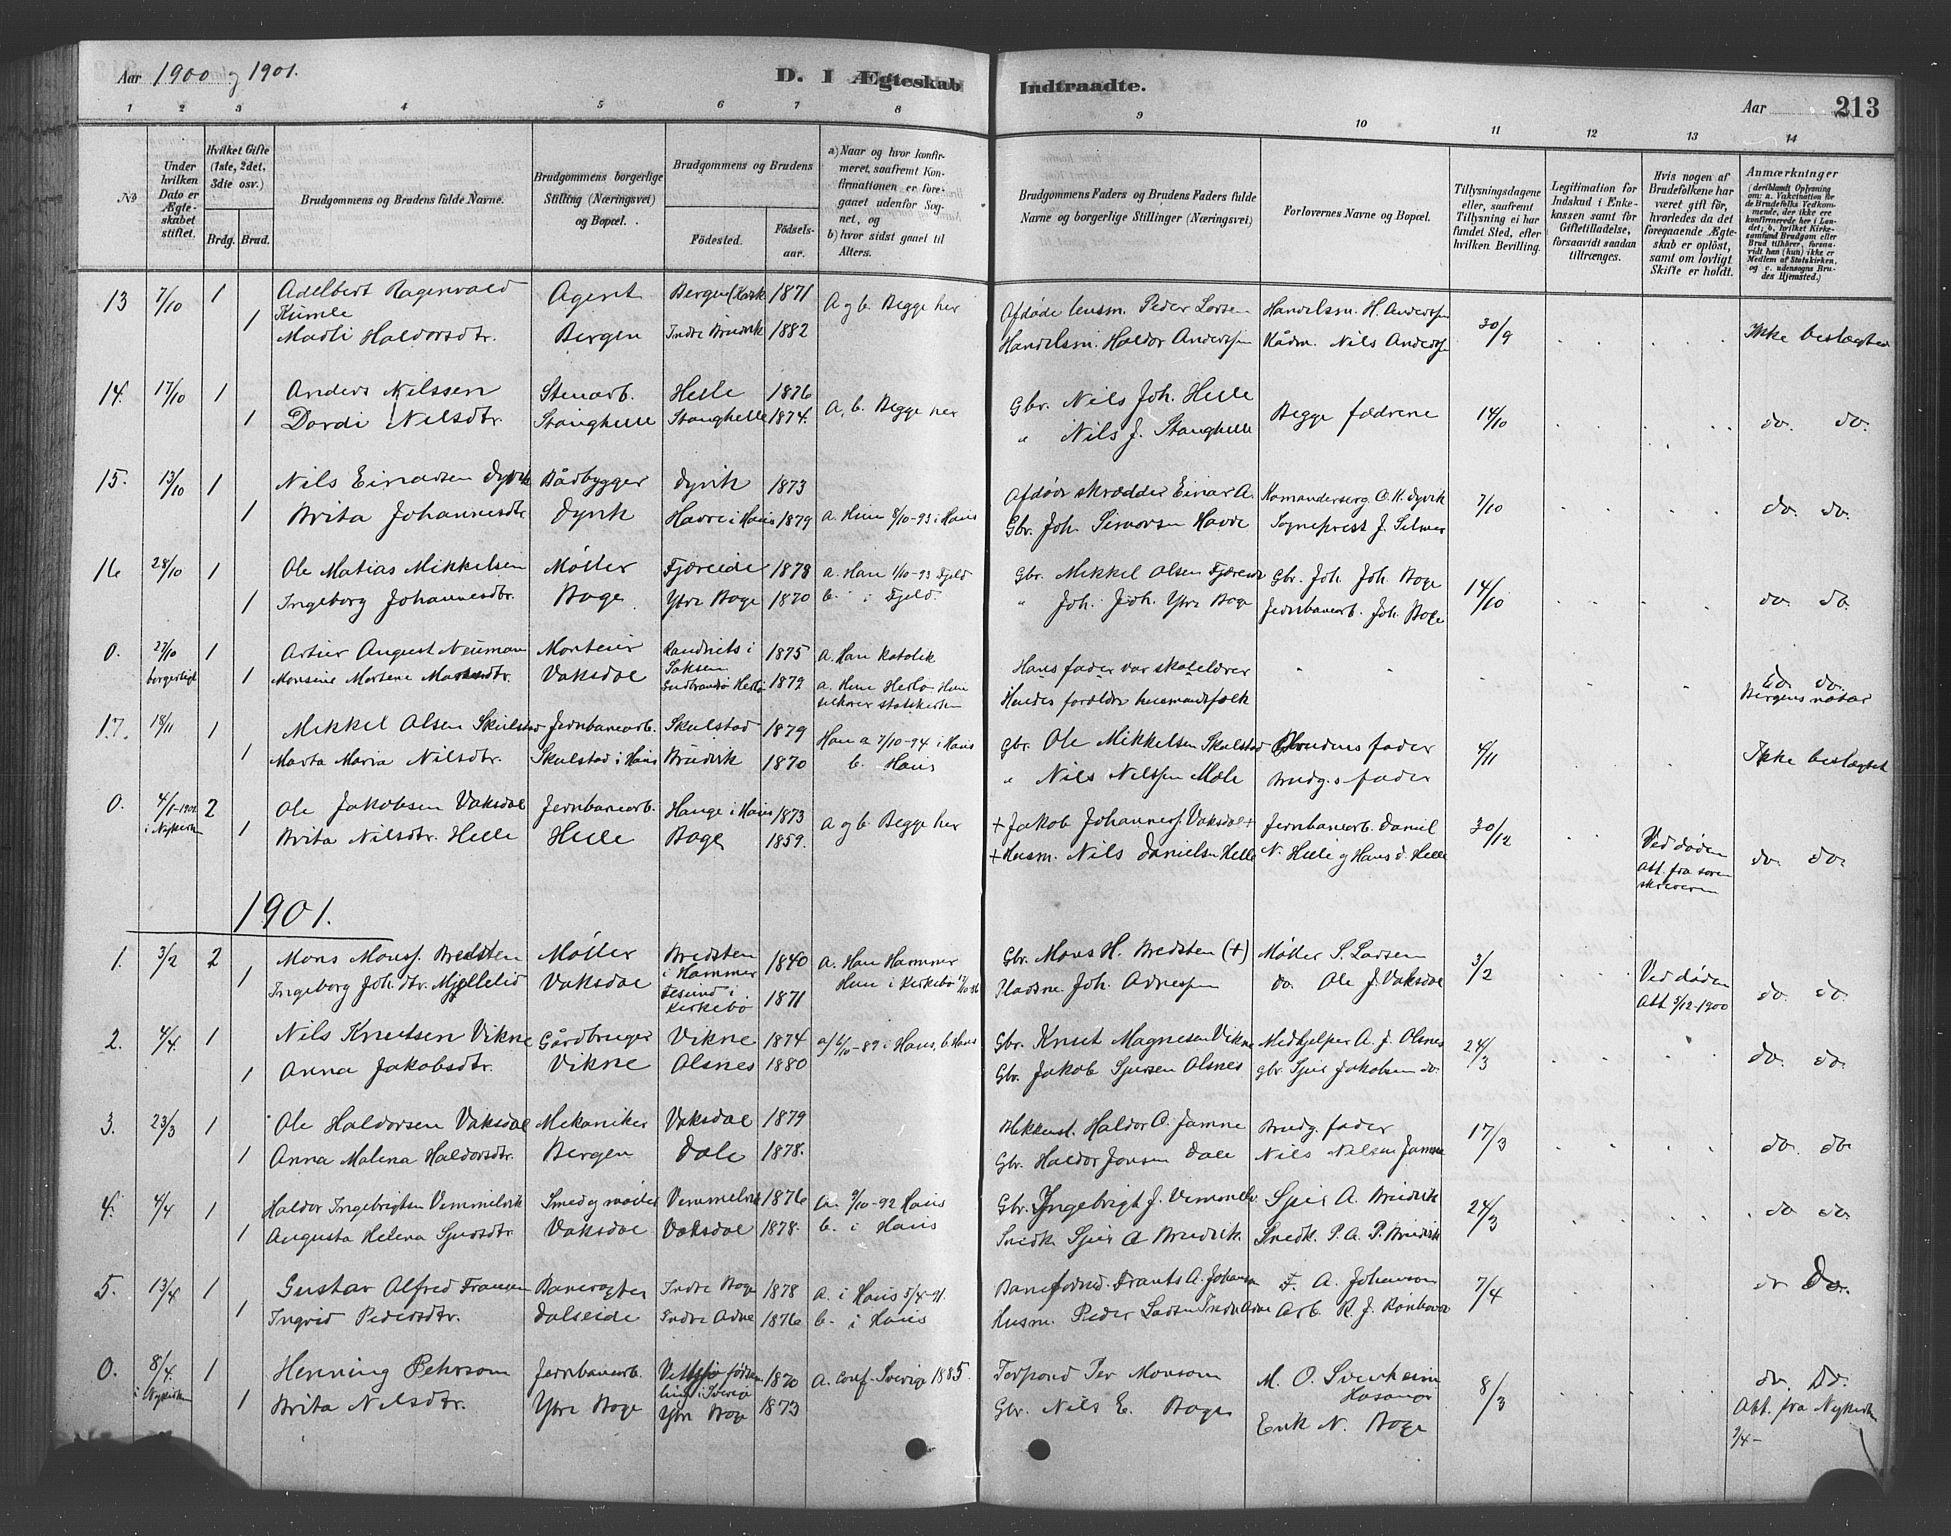 Aar 1900 og 1901.
D. I Ægteskab Indtraadte.
Aar
213
1 2 3 4 5 6 7 8 9 10 11 12 13 14
No
Under hvilken Dato er Ægteskabet stiftet.
Hvilket Gifte (1ste, 2det, 3die osv.)
Brdg. Brud.
Brudgommens og Brudens fulde Navne.
Brudgommens borgerlige Stilling (Næringsvei) og Bopæl.
Brudgommens og Brudens
Födested.
Födselsaar.
a) Naar og hvor konfirmeret, saafremt Konfirmationen er foregaaet udenfor Sognet, og
b) hvor sidst gaaet til Alters.
Brudgommens Faders og Brudens Faders fulde Navne og borgerlige Stillinger (Næringsvei)
Forlovernes Navne og Bopæl.
Tillysningsdagene eller, saafremt Tillysning ei har fundet Sted, efter hvilken Bevilling.
Legitimation for Indskud i Enkekassen samt for Giftetilladelse, forsaavidt saadan tiltrænges.
Hvis nogen af Brudefolkene har været gift för, hvorledes da det foregaaende Ægteskab er oplöst, samt om lovligt Skifte er holdt.
Anmærkninger
13 7/10 1 Adelbert Ragenvald Kumle Agent Bergen 1871 A og b. Begge her Afdøde Peder Larsen Handelsm. H. Andersen 30/9 Ikke beslægtet
1 Madli Haldorsdtr. Bergen Indre Bruvik 1882 Handelsm. Haldor Andersen Nils Andersen
14. 17/10 1 Anders Nilssen Stenarb. Helle 1876 A, b. Begge her Gbr. Nils Joh. Helle Begge fædrene 14/10 do. do.
1 Dordi Nilsdtr. Stanghelle Stanghelle 1874. " Nils J. Stanghelle
15. 13/10 1 Nils Einarsen Dyvik Bådbygger Dyvik 1873 Afdøde skrædder Einar A. O. K. Dyvik 7/10 do. do.
1 Brita Johannesdtr Dyvik Havre i Haus 1879 a. Hun 8/10-93 i Haus Gbr. Joh. Simonsen Havre Sogneprest J. Selmer
16 28/10 1 Ole Matias Mikkelsen Møller Fjæreide 1878 a. Han 1/10-93 Fjeld Gbr. Mikkel Olsen Fjæreide Gbr. Joh. Joh. Boge 14/10 do. do.
1 Ingeborg Johannesdtr. Boge Ytre Boge 1870 b. " i Fjeld. " Joh. Joh. Ytre Boge Jernbanearb. Joh. Boge
0. 27/10 borgerligt 1 Artur August Neumann Monteur i Saksen 1875 a. Han Katolik Hans fader var skolelærer " " do. do.
1 Monsine Martene Vaksdal Herlø 1879 a. Hun Herlø Hun tilhører statskirken Hendes forældre husmandsfolk Bergens notar
17. 18/11 1 Mikkel Olsen Skulstad Jernbanearb. Skulstad 1879 Han a 7/10-94 i Haus Gbr. Ole Mikkelsen Skulstad Brudens fader 4/11 Ikke beslægtet
1 Marta Maria Nilsdtr. Skulstad i Haus Bruvik 1870 b. Haus " Nils Nilssen Mæle Brudg.s fader
0. 4/1-1901 i Nykirken 2 Ole Jakobsen Vaksdal Jernbanearb. Hauge i Haus 1873 A og b. Begge her + Jakob Johanness. Vaksdal + Jernbanearb. Daniel 30/12 Ved døden do. do.
1 Brita Nilsdtr. Helle Helle Boge 1859. + Husm. Nils Danielsen Helle N. Helle og Hans D. Helle Att. fra sorenskriveren
1901.
1. 3/2 2 Mons Monss. Bredsten Møller Bredsten i Hammer 1840 a. Han Hammer Gbr. Mons H. Bredsten (+) Møller S. Larsen 3/2 Ved døden do. do.
1 Ingeborg Joh.dtr. Mjellelid Vaksdal i Kirkebø 1871 Hun i Kirkebø Pladsm. Joh. do. Ole J. Vaksdal Att 3/12-1900
2. 4/4. 1 Nils Knutsen Vikne Gårdbruger Vikne 1874 a/ 6/10-89 i Haus, b. Haus Gbr. Knut Magnesen Vikne Medhjelper A. J. Olsnes 24/3 do. do.
1 Anna Jakobsdtr. Vikne Olsnes 1880 Gbr. Jakob Sjursen Olsnes gbr. Sjur Jakobsen do.
3. 23/3 1 Ole Haldorsen Vaksdal Mekaniker Vaksdal 1879 Haldor O. Jamne Brudg. fader 17/3 do. do.
1 Anna Malena Haldorsdtr. Bergen Dale 1878. Gbr. Haldor Jonsen Dale Nils Nilsen Jamne
4. 4/4 1 Haldor Ingebrigtsen Vemmelvik Smed og møller Vemmelvik 1876 a. 9/10-92 Haus Gbr. Ingebrigt J. Vemmelv. Sjur A. Bruvik 24/3 do do.
1 Augusta Helena Sjursdtr. Vaksdal Vaksdal 1878. b. i Haus Snedk. Sjur A Bruvik. Snedk. P. A. P. Bruvik
5. 13/4 1 Gustav Alfred Fransen Banevogter Indre Boge 1878 a. i Haus 5/4-91. Baneformd. Frants A. Johanson F. A. Johanson 7/4 do Do.
1 Ingrid Pedersdtr. Dalseide Indre Arne 1876 b. i Haus Husm. Peder Larsen Indre Arne Arb. K. J.
0. 8/4. i Nykirken 1 Henning Pehrsson Jernbanearb. i Sverige 1870 a. conf. Sverige 1885 Torpond Per Monsson M. O. Hosanger 8/3 do. Do.
1 Brita Nilsdtr. Ytre Boge Ytre Boge 1873 Gbr. Nils E. Boge Erik N. Boge Att. fra Nykirken 9/4-